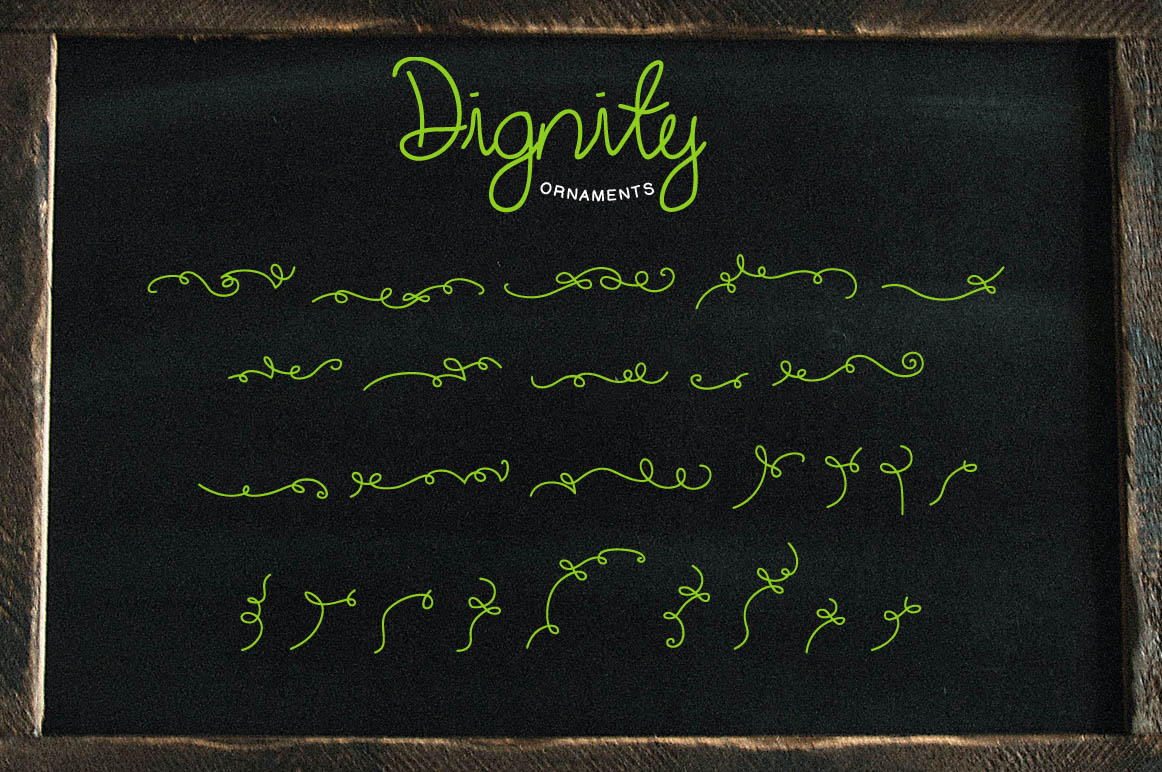 Dignity
ORNAMENTS